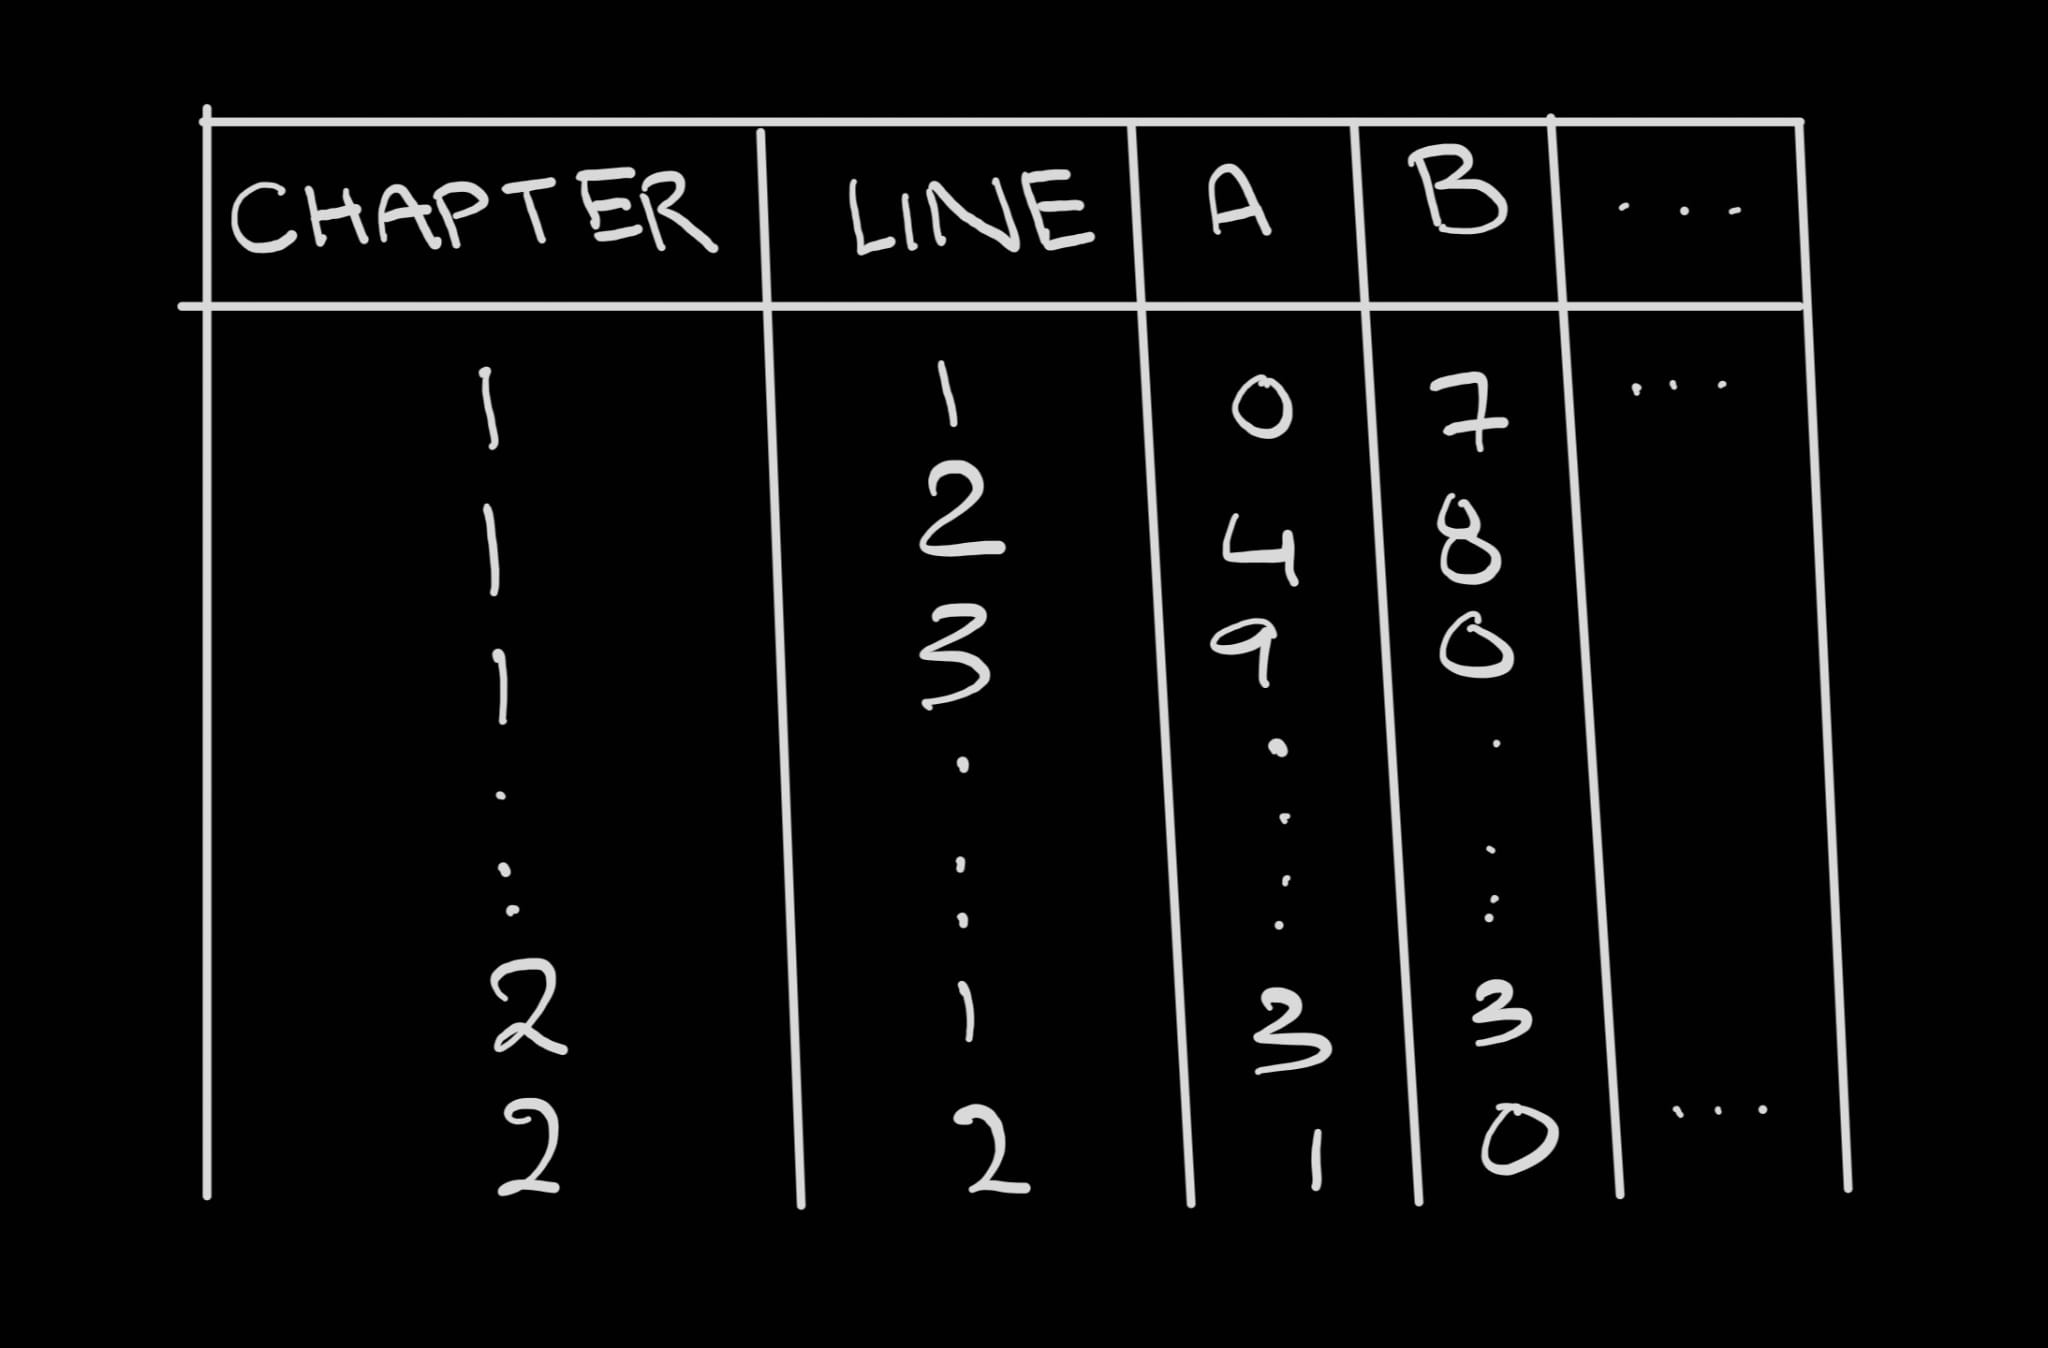 CHAPTER LINE A B ...
1 1 0 7 ...
1 2 4 8
1 3 9 0
. . . .
. . . .
. . . .
2 1 3 3
2 2 1 0 ...